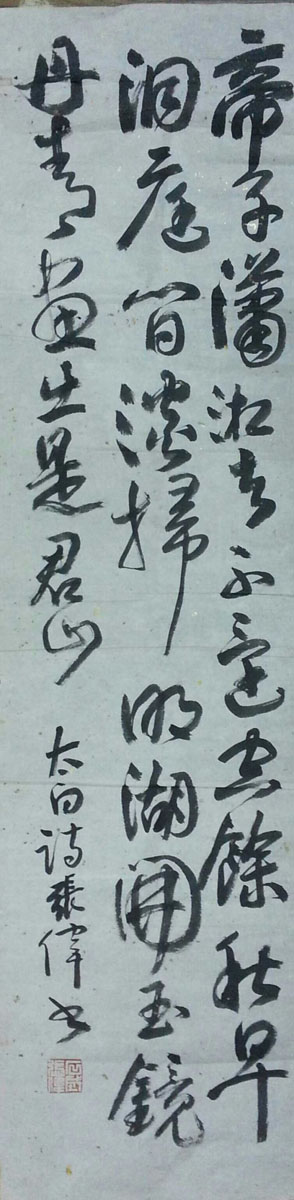 帝子瀟湘去不還空餘秋草
洞庭間淡掃明湖開玉鏡
丹青畫出是君山
太白詩張偉書